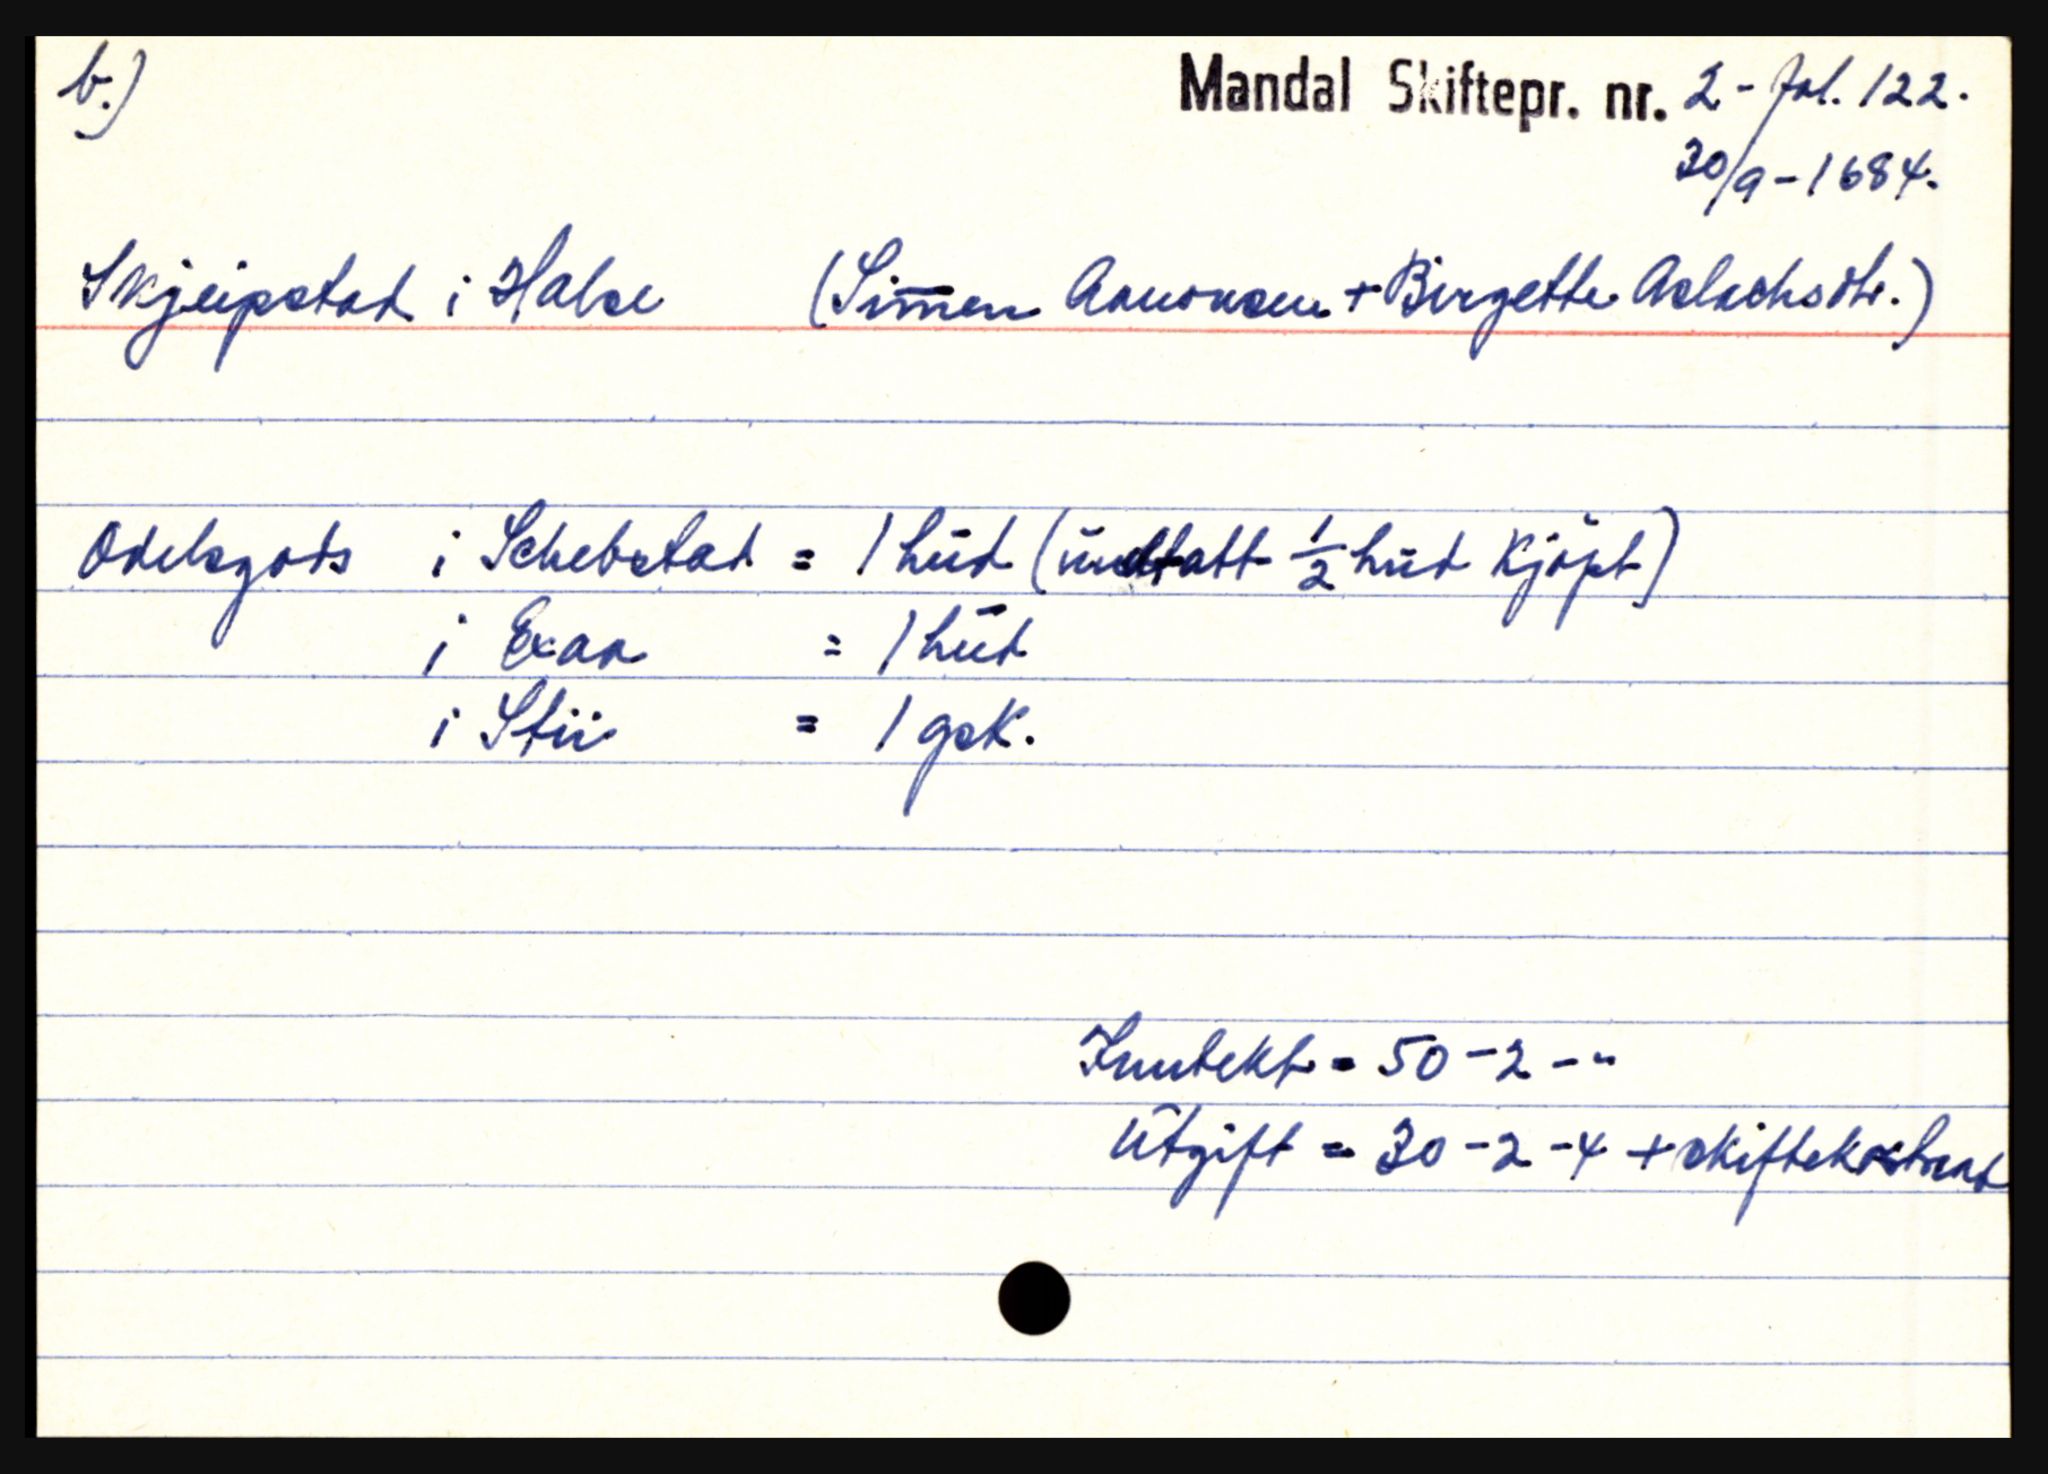 b.)
Mandal Skiftepr. nr. 2 - fol. 122.
30/9 - 1684.
Skjeipstad i Halse (Sim̅en Aanonsen + Birgette Aslachsdtr.)
Odelsgods i Schebstad = 1 hud (undtatt 1/2 hud kjöpt)
i Exaa = 1 hud
i Stii = 1 gsk.
Inntekt = 50 - 2 - "
Utgift = 30 - 2 - 4 + skiftekostnad